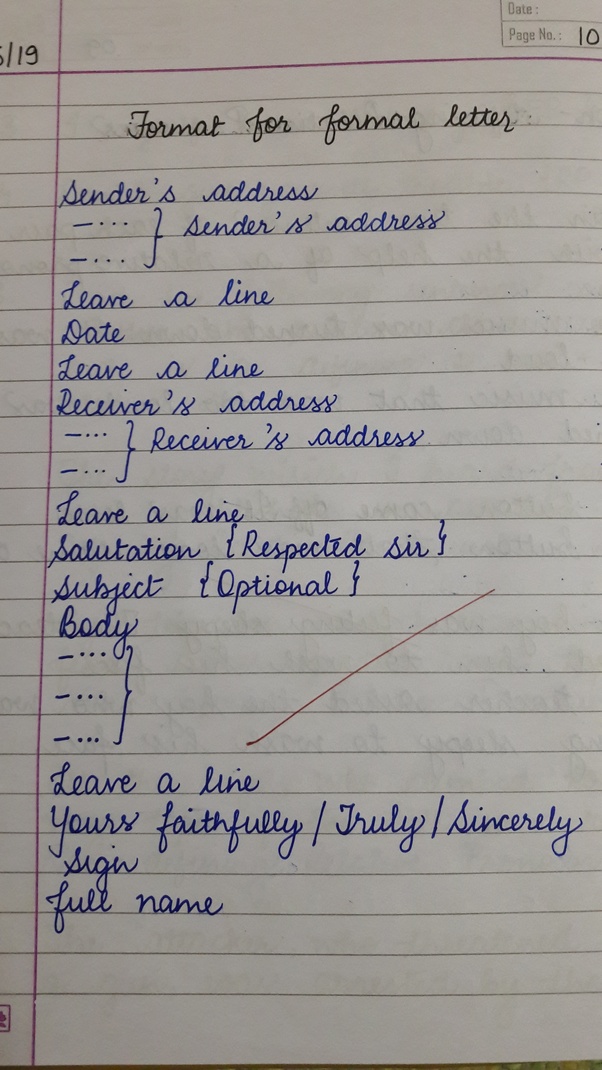 Date :
Page No. : 10
5/19
Format for formal letter
Sender's address
— ... } Sender's address
— ...
Leave a line
Date
Leave a line
Receiver's address
— ... } Receiver's address
— ...
Leave a line
Salutation {Respected Sir}
Subject {Optional}
Body
— ... }
— ...
— ...
Leave a line
Yours faithfully / Truly / Sincerely
Sign
full name